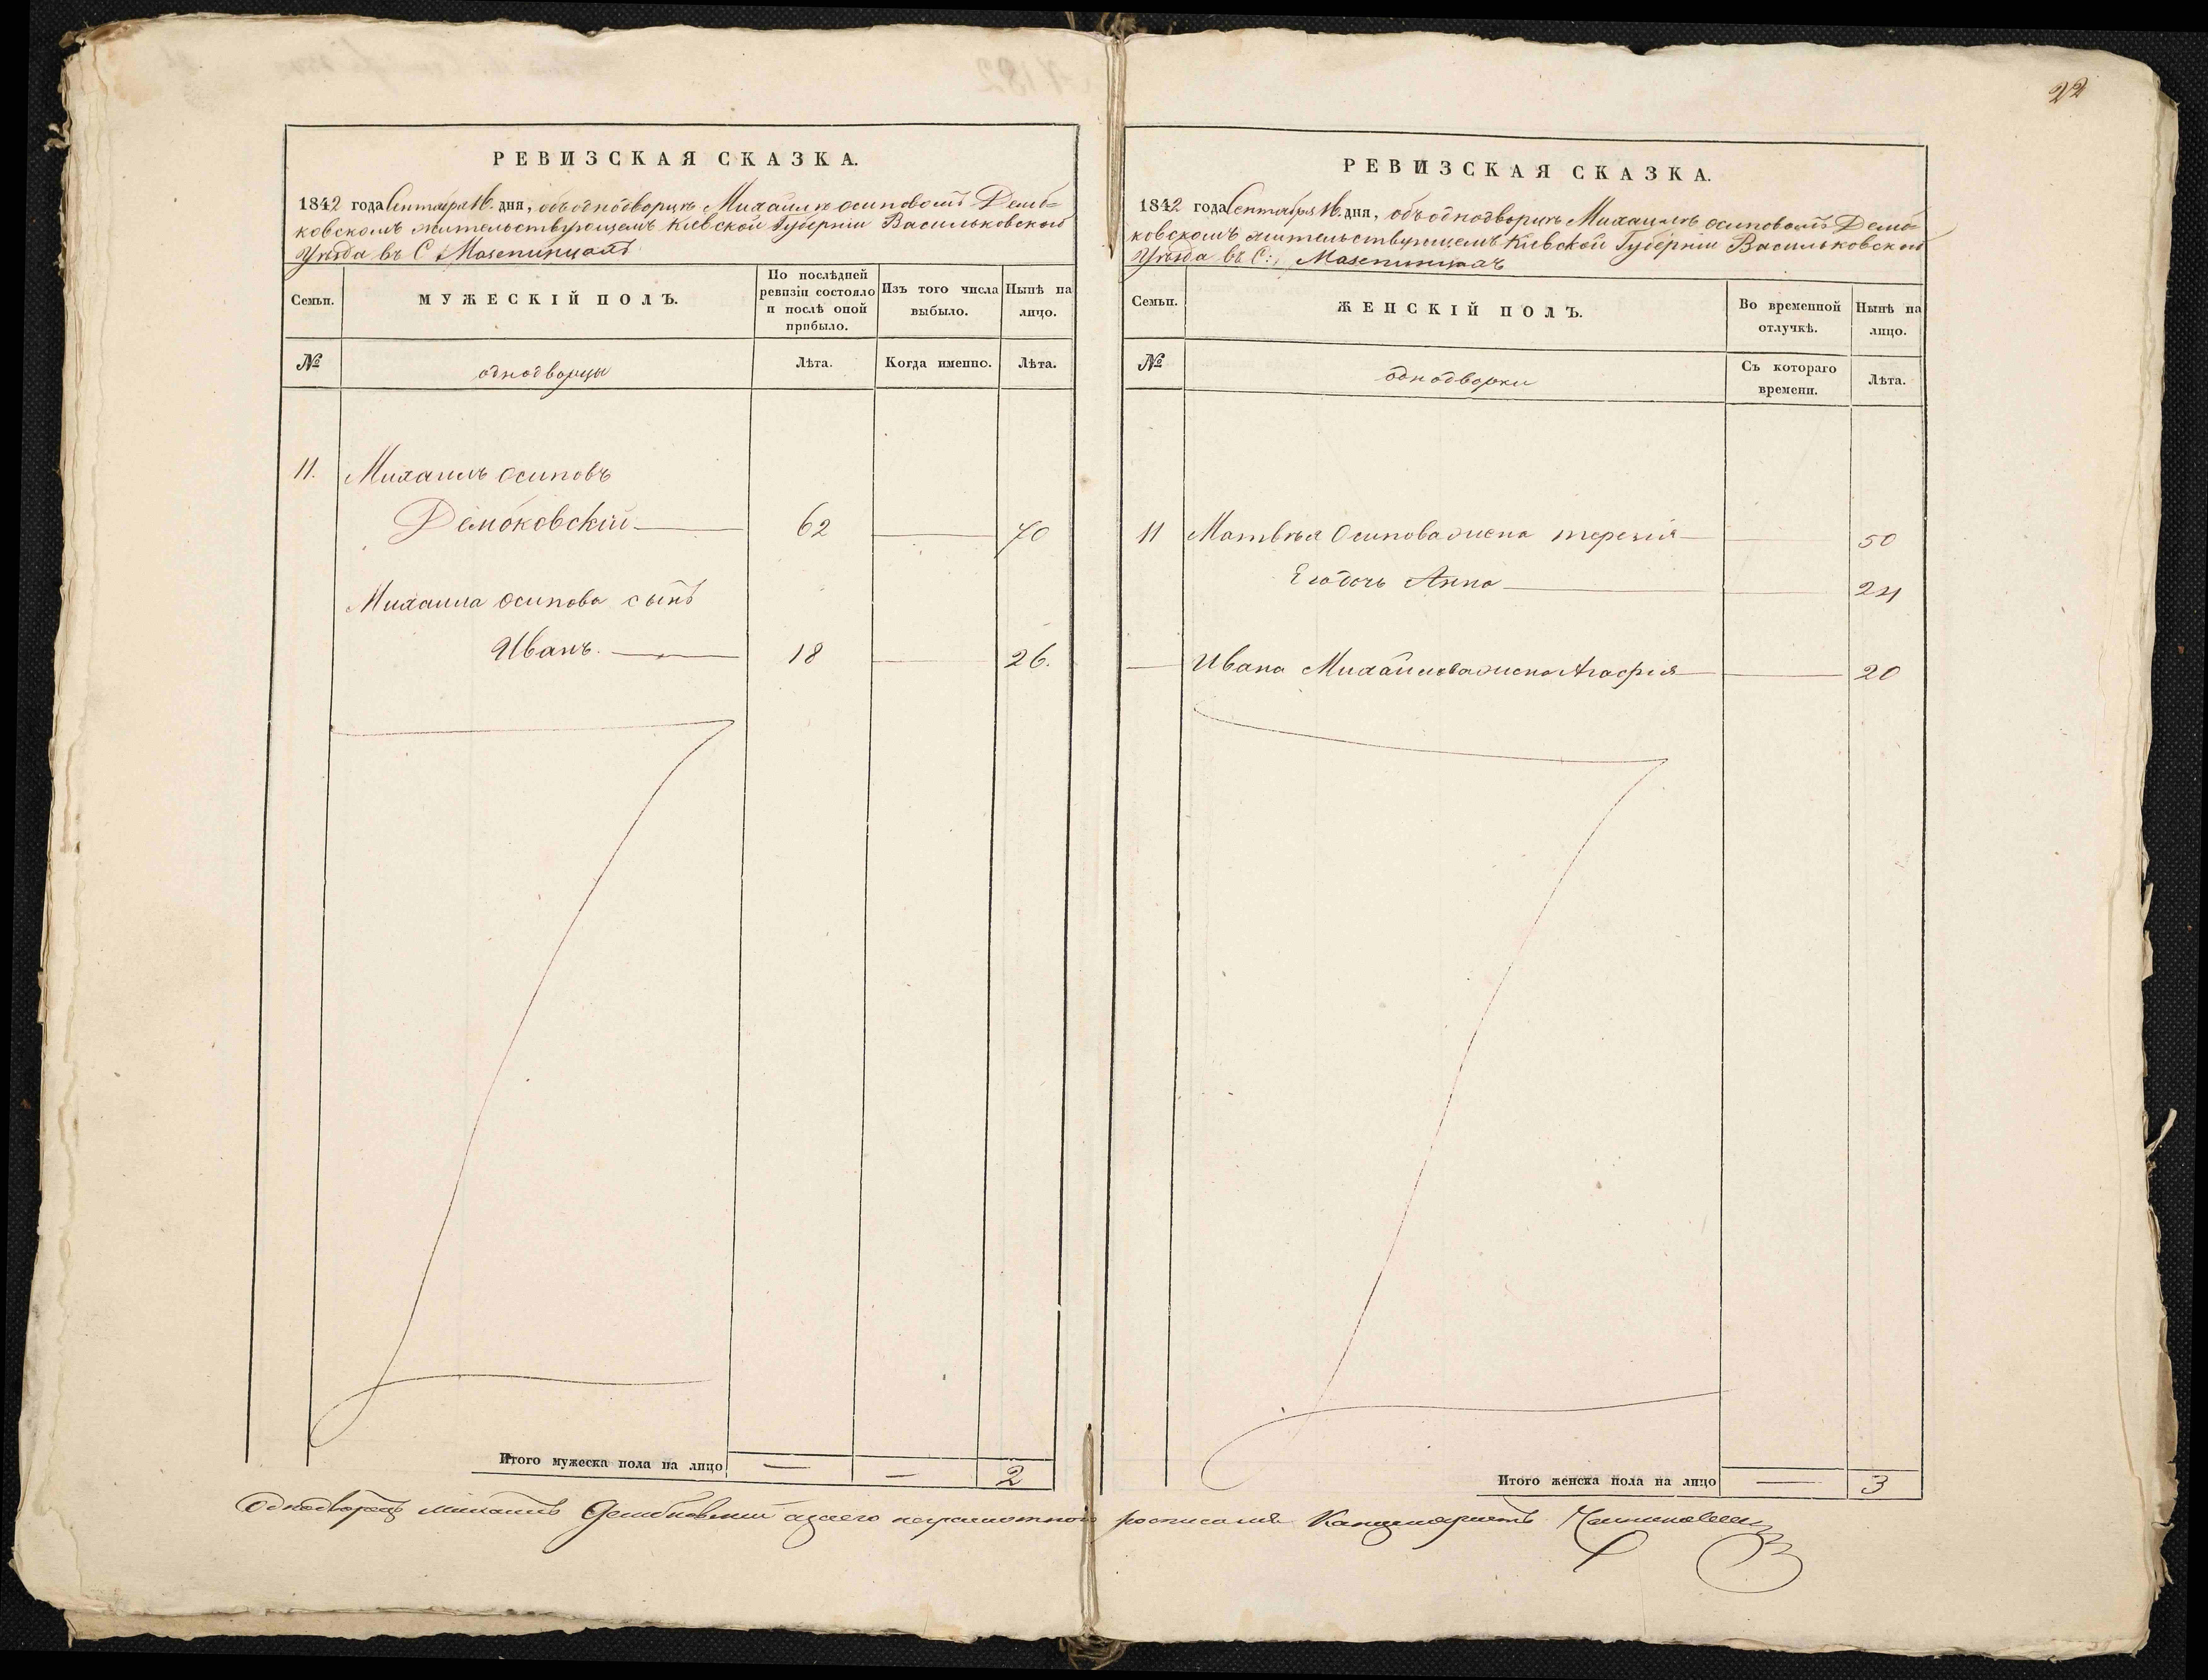 22
РЕВИЗСКАЯ СКАЗКА.
1842 года Сентября 16. дня, объ однодворцѣ Михаилѣ Осиповомъ Демб-
ковскомъ жительствующемъ Кіевской Губерніи Васильковскаго
Уѣзда въ С Мазепинцахъ
Семьи.
МУЖЕСКІЙ ПОЛЪ.
По послѣдней ревизіи состояло и послѣ оной прибыло.
Изъ того числа выбыло.
Нынѣ на лицо.
№
однодворцы
Лѣта.
Когда именно.
Лѣта.
11. Михаилъ Осиповъ
Дембковскій 62 70
Михаила Осипова сынъ
Иванъ. 18 26.
Итого мужеска пола на лицо — — 2
РЕВИЗСКАЯ СКАЗКА.
1842 года Сентября 16. дня, объ однодворцѣ Михаилѣ Осиповомъ Демб-
ковскомъ жительствующемъ Кіевской Губерніи Васильковскаго
Уѣзда въ С: Мазепинцахъ
Семьи.
ЖЕНСКІЙ ПОЛЪ.
Во временной отлучкѣ.
Нынѣ на лицо.
№
однодворки
Съ котораго времени.
Лѣта.
11 Матвѣя Осипова жена терезія — 50
Его дочь Анна — 24
— Ивана Михайлова жена Агафія — 20
Итого женска пола на лицо — 3
Однодворецъ михаилъ Дембковскій а за его неграмотного росписался Канцеляристъ